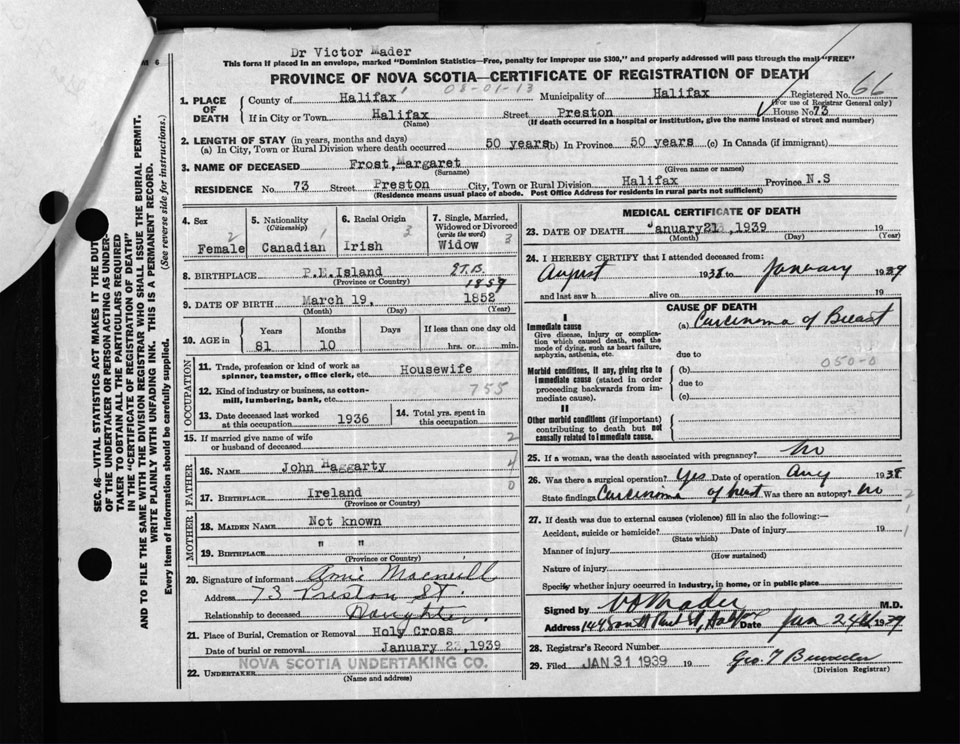 Dr Victor Mader
This form if placed in an envelope, marked "Dominion Statistics—Free, penalty for improper use $300," and properly addressed will pass through the mail "FREE"
PROVINCE OF NOVA SCOTIA—CERTIFICATE OF REGISTRATION OF DEATH
03-01-13
1. PLACE OF DEATH
County of Halifax Municipality of Halifax Registered No. 66
(For use of Registrar General only)
If in City or Town Halifax Street Preston House No 73
(Name) (If death occurred in a hospital or institution, give the name instead of street and number)
2. LENGTH OF STAY (in years, months and days)
(a) In City, Town or Rural Division where death occurred 50 years (b) In Province 50 years (c) In Canada (if immigrant)
3. NAME OF DECEASED Frost, Margaret
(Surname) (Given name or names)
RESIDENCE No. 73 Street Preston City, Town or Rural Division Halifax Province N.S
(Residence means usual place of abode. Post Office Address for residents in rural parts not sufficient)
4. Sex Female 2
5. Nationality (Citizenship) Canadian
6. Racial Origin Irish 3
7. Single, Married, Widowed or Divorced (write the word) Widow 3
8. BIRTHPLACE P.E.Island
(Province or Country) 1857
9. DATE OF BIRTH March 19, 1852
(Month) (Day) (Year)
10. AGE in Years Months Days If less than one day old
81 10 hrs. or min.
OCCUPATION
11. Trade, profession or kind of work as spinner, teamster, office clerk, etc. Housewife
12. Kind of industry or business, as cotton-mill, lumbering, bank, etc. 755
13. Date deceased last worked at this occupation 1936
14. Total yrs. spent in this occupation
15. If married give name of wife or husband of deceased 2
FATHER
16. NAME John Haggarty 4
17. BIRTHPLACE Ireland 0
(Province or Country)
MOTHER
18. MAIDEN NAME Not known
19. BIRTHPLACE " "
(Province or Country)
20. Signature of informant Annie Macneill
Address 73 Preston St.
Relationship to deceased Daughter.
21. Place of Burial, Cremation or Removal Holy Cross
Date of burial or removal January 23, 1939
NOVA SCOTIA UNDERTAKING CO.
22. UNDERTAKER
(Name and address)
MEDICAL CERTIFICATE OF DEATH
23. DATE OF DEATH January 21, 1939 19
(Month) (Day) (Year)
24. I HEREBY CERTIFY that I attended deceased from:
August 1938 to January 1939
and last saw h alive on 19
CAUSE OF DEATH
I
Immediate cause (a) Carcinoma of Breast
Give disease, injury or complication which caused death, not the mode of dying, such as heart failure, asphyxia, asthenia, etc.
due to
050-0
Morbid conditions, if any, giving rise to immediate cause (stated in order proceeding backwards from immediate cause).
(b)
due to
(c)
II
Other morbid conditions (if important) contributing to death but not causally related to immediate cause.
25. If a woman, was the death associated with pregnancy? No
26. Was there a surgical operation? Yes Date of operation Aug 1938
State findings Carcinoma of breast Was there an autopsy? No
27. If death was due to external causes (violence) fill in also the following:—
Accident, suicide or homicide? Date of injury 19
(State which)
Manner of injury
(How sustained)
Nature of injury
Specify whether injury occurred in industry, in home, or in public place
Signed by V O Mader M.D.
Address Halifax Date Jan 24th 1939
28. Registrar's Record Number
29. Filed JAN 31 1939 19
(Division Registrar)
SEC. 46—VITAL STATISTICS ACT MAKES IT THE DUTY
OF THE UNDERTAKER OR PERSON ACTING AS UNDER-
TAKER TO OBTAIN ALL THE PARTICULARS REQUIRED
IN THE "CERTIFICATE OF REGISTRATION OF DEATH"
AND TO FILE THE SAME WITH THE DIVISION REGISTRAR WHO SHALL ISSUE THE BURIAL PERMIT.
WRITE PLAINLY WITH UNFADING INK. THIS IS A PERMANENT RECORD.
Every item of information should be carefully supplied. (See reverse side for instructions.)